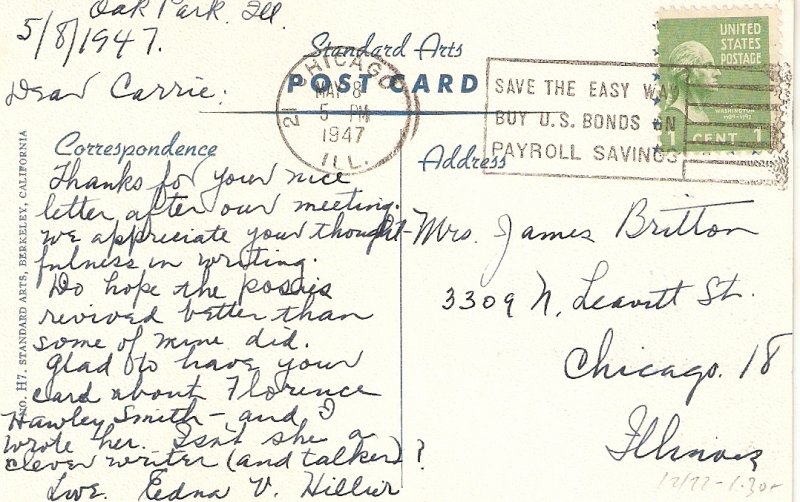 Oak Park Ill.
5/8/1947.
Dear Carrie:
Standard Arts
POST CARD
21 CHICAGO ILL.
MAY 8
5 PM
1947
SAVE THE EASY WAY
BUY U.S. BONDS ON
PAYROLL SAVINGS
UNITED
STATES
POSTAGE
WASHINGTON
CENT
Correspondence
Thanks for your nice
letter after our meeting.
We appreciate your thought-
fulness in writing.
Do hope the posies
revived better than
some of mine did.
Glad to have your
card about Florence
Hawley Smith - and I
wrote her. Isn't she a
clever writer (and talker)?
Love. Edna V. Hillier
Address
Mrs. James Britton
3309 N. Leavitt St.
Chicago. 18
Illinois
NO. H7. STANDARD ARTS, BERKELEY, CALIFORNIA